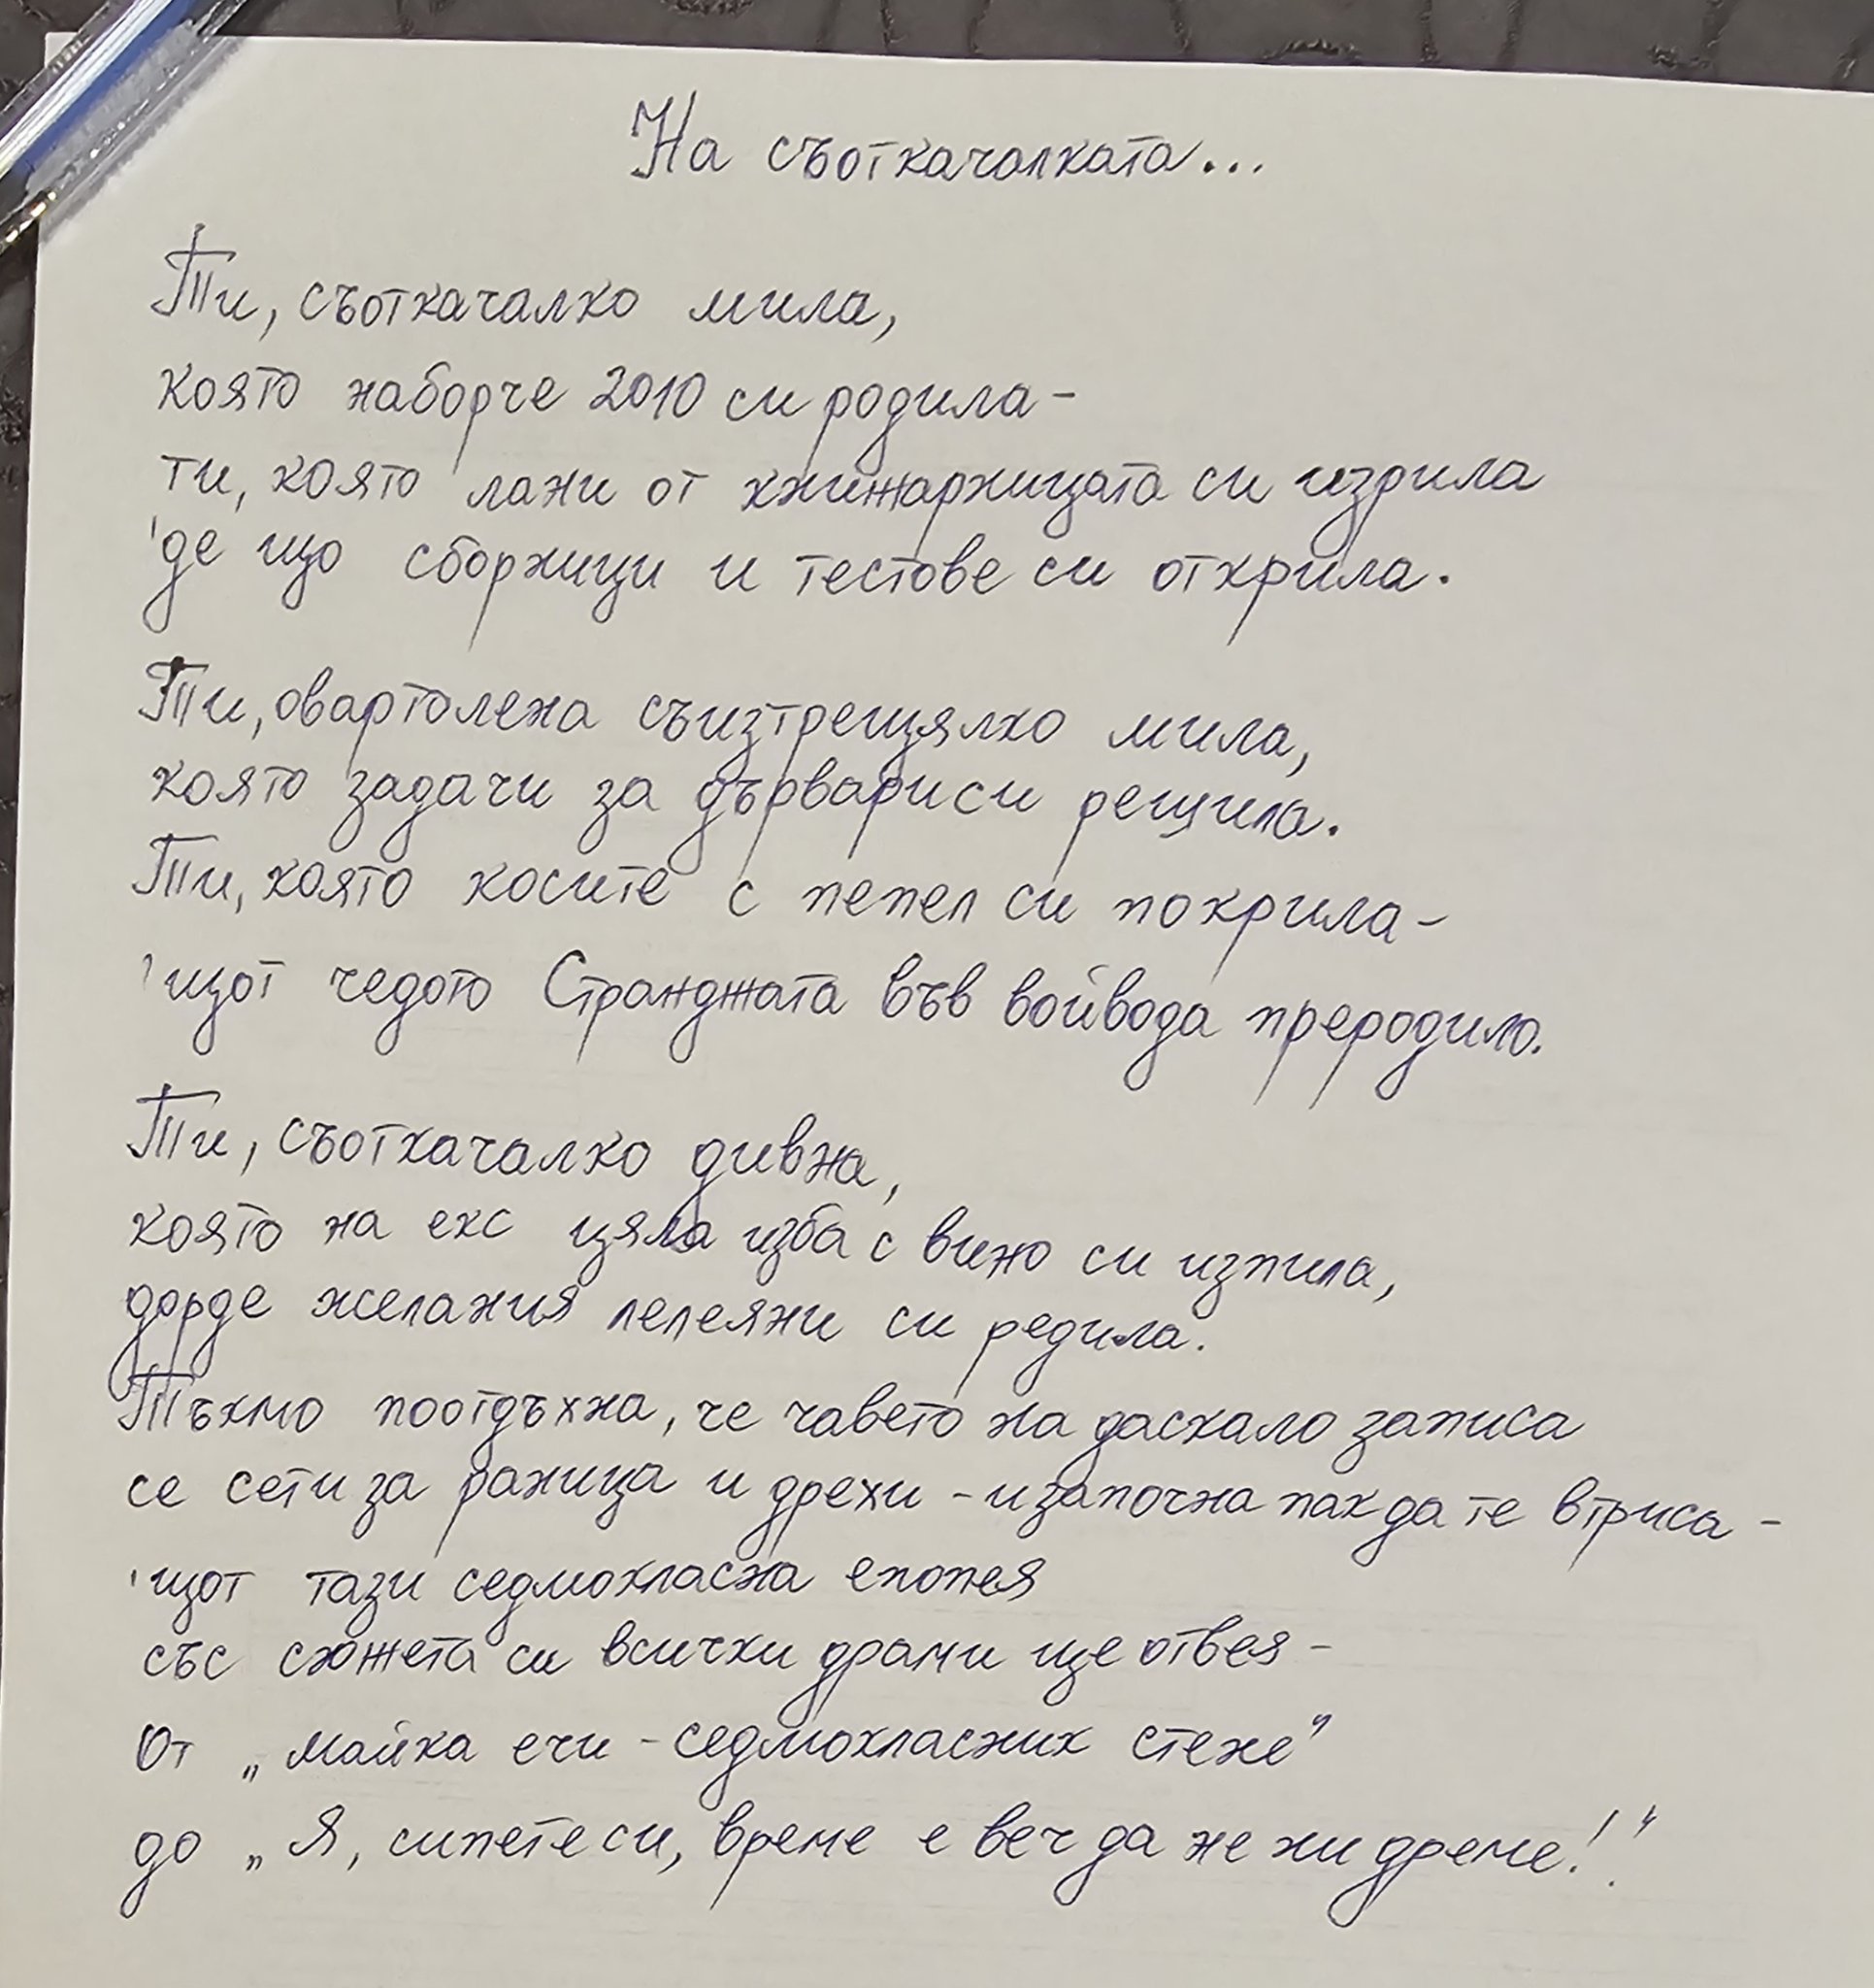 На съоткачалката...
Ти, съоткачалко мила,
която наборче 2010 си родила -
ти, която лани от книжарницата си изрила
'де що сборници и тестове си открила.
Ти, овартолена съизтрещялко мила,
която задачи за дървари си решила.
Ти, която косите с пепел си покрила -
'щот чедото Странджата във войвода преродило.
Ти, съоткачалко дивна,
която на екс цяла изба с вино си изпила,
дорде желания лелеяни си редила.
Тъкмо поотдъхна, че чавето на даскало записа
се сети за раница и дрехи - и започна пак да те втриса -
'щот тази седмокласна епопея
със сюжета си всички драми ще отвея -
От „майка ечи - седмокласник стене"
до „Я, сипете си, време е веч да не ни дреме!"